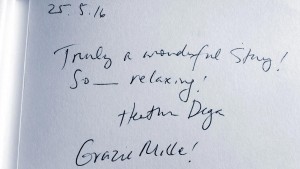 25.5.16
Truly a wonderful Stay!
So relaxing!
Heather
Grazie Mille!